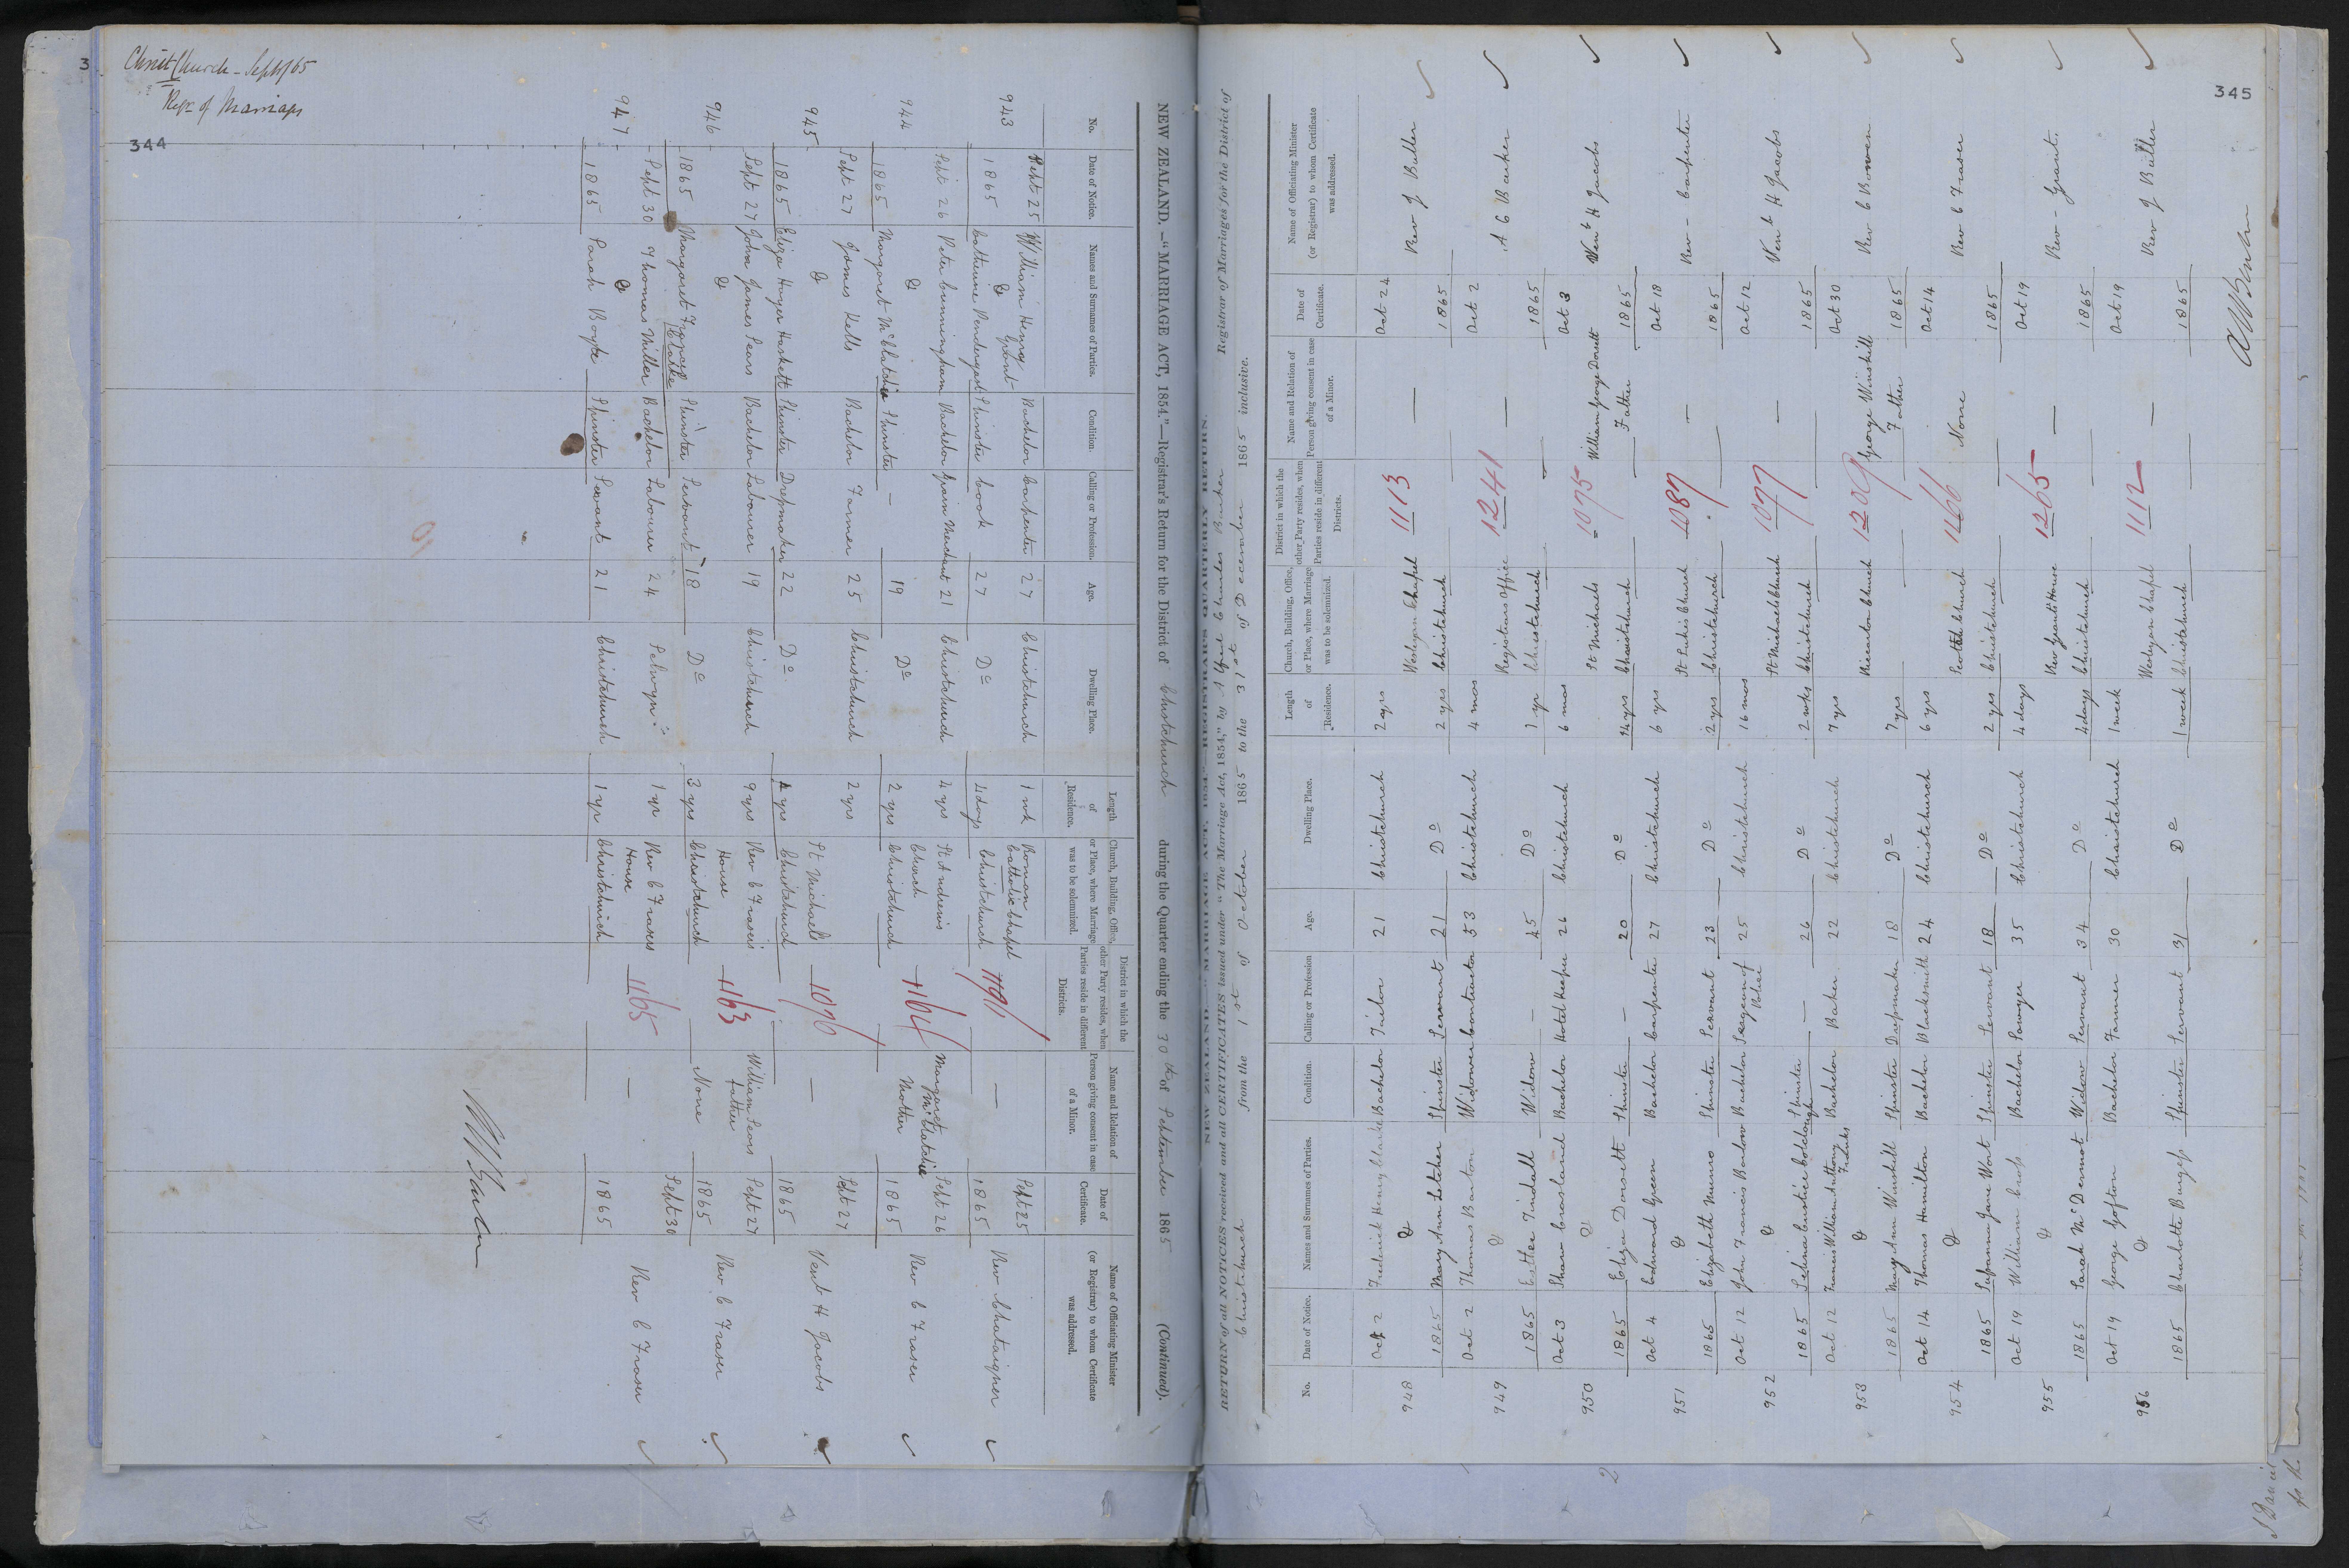 Christ Church - Sept/65
Regr of Marriages
344
NEW ZEALAND.—"MARRIAGE ACT, 1854."—Registrar's Return for the District of Christchurch during the Quarter ending the 30th of September 1865 (Continued).
No. Date of Notice. Names and Surnames of Parties. Condition. Calling or Profession. Age. Dwelling Place. Length of Residence. Church, Building, Office, or Place, where Marriage was to be solemnized. District in which the other Party resides, when Parties reside in different Districts. Name and Relation of Person giving consent in case of a Minor. Date of Certificate. Name of Officiating Minister (or Registrar) to whom Certificate was addressed.
943 Sept 25 William Henry Grant Bachelor Carpenter 27 Christchurch 1 wk Roman Catholic Chapel 1191 — Sept 25 Rev Chataigner
1865 & Catherine Pendergast Spinster Cook 27 Do 4 days Christchurch 1865
944 Sept 26 Peter Cunningham Bachelor Grain Merchant 21 Christchurch 4 yrs St Andrews Church 1164 Margaret McClatchie Mother Sept 26 Rev C Fraser
1865 & Margaret McClatchie Spinster — 19 Do 2 yrs Christchurch 1865
945 Sept 27 James Kells Bachelor Farmer 25 Christchurch 2 yrs St Michaels 1076 — Sept 27 Vent H Jacobs
1865 & Eliza Hoyer Haskett Spinster Dressmaker 22 Do 4 yrs Christchurch 1865
946 Sept 27 John James Sears Bachelor Labourer 19 Christchurch 9 yrs Rev C Frasers House 1163 William Sears father Sept 27 Rev C Fraser
1865 & Margaret Blake Spinster Servant 18 Do 3 yrs Christchurch None 1865
947 Sept 30 Thomas Miller Bachelor Labourer 24 Selwyn 1 yr Rev C Frasers House 1165 — Sept 30 Rev C Fraser
1865 & Sarah Boyle Spinster Servant 21 Christchurch 1 yr Christchurch 1865
345
NEW ZEALAND.—"MARRIAGE ACT, 1854."—REGISTRAR'S QUARTERLY RETURN.
RETURN of all NOTICES received and all CERTIFICATES issued under "The Marriage Act, 1854," by Alfred Charles Barker Registrar of Marriages for the District of
Christchurch from the 1st of October 1865 to the 31st of December 1865 inclusive.
No. Date of Notice. Names and Surnames of Parties. Condition. Calling or Profession Age. Dwelling Place. Length of Residence. Church, Building, Office, or Place, where Marriage was to be solemnized. District in which the other Party resides, when Parties reside in different Districts. Name and Relation of Person giving consent in case of a Minor. Date of Certificate. Name of Officiating Minister (or Registrar) to whom Certificate was addressed.
948 Oct 2 Frederick Henry Clarke Bachelor Tailor 21 Christchurch 2 yrs Wesleyan Chapel 1113 — Oct 24 Rev J Buller
1865 & Mary Ann Letcher Spinster Servant 21 Do 2 yrs Christchurch 1865
949 Oct 2 Thomas Barton Widower Contractor 53 Christchurch 4 mos Registrars Office 1241 — Oct 2 A C Barker
1865 & Esther Tindall Widow — 45 Do 1 yr Christchurch 1865
950 Oct 3 Shaw Crosland Bachelor Hotel Keeper 26 Christchurch 6 mos St Michaels 1075 William George Dorsett Father Oct 3 Vent H Jacobs
1865 & Eliza Dorsett Spinster — 20 Do 14 yrs Christchurch 1865
951 Oct 4 Edward Green Bachelor Carpenter 27 Christchurch 6 yrs St Lukes Church 1087 — Oct 18 Rev - Carpenter
1865 & Elizabeth Munro Spinster Servant 23 Do 2 yrs Christchurch 1865
952 Oct 12 John Francis Barlow Bachelor Sergeant of Police 25 Christchurch 16 mos St Michaels Church 1077 — Oct 12 Vent H Jacobs
1865 & Selina Caustice Colclough Spinster — 26 Do 2 wks Christchurch 1865
953 Oct 12 Francis William Anthony Franks Bachelor Baker 22 Christchurch 7 yrs Riccarton Church 1209 George Winskill Father Oct 30 Rev C Bowen
1865 & Mary Ann Winskill Spinster Dressmaker 18 Do 7 yrs 1865
954 Oct 14 Thomas Hamilton Bachelor Blacksmith 24 Christchurch 6 yrs Scotch Church 1166 None Oct 14 Rev C Fraser
1865 & Susanna Jane Wort Spinster Servant 18 Do 2 yrs Christchurch 1865
955 Oct 19 William Cross Bachelor Sawyer 35 Christchurch 4 days Rev Grants House 1265 — Oct 19 Rev - Grant.
1865 & Sarah McDermot Widow Servant 34 Do 4 days Christchurch 1865
956 Oct 19 George Gofton Bachelor Farmer 30 Christchurch 1 week Wesleyan Chapel 1112 — Oct 19 Rev J Buller
1865 & Charlotte Burgess Spinster Servant 31 Do 1 week Christchurch 1865